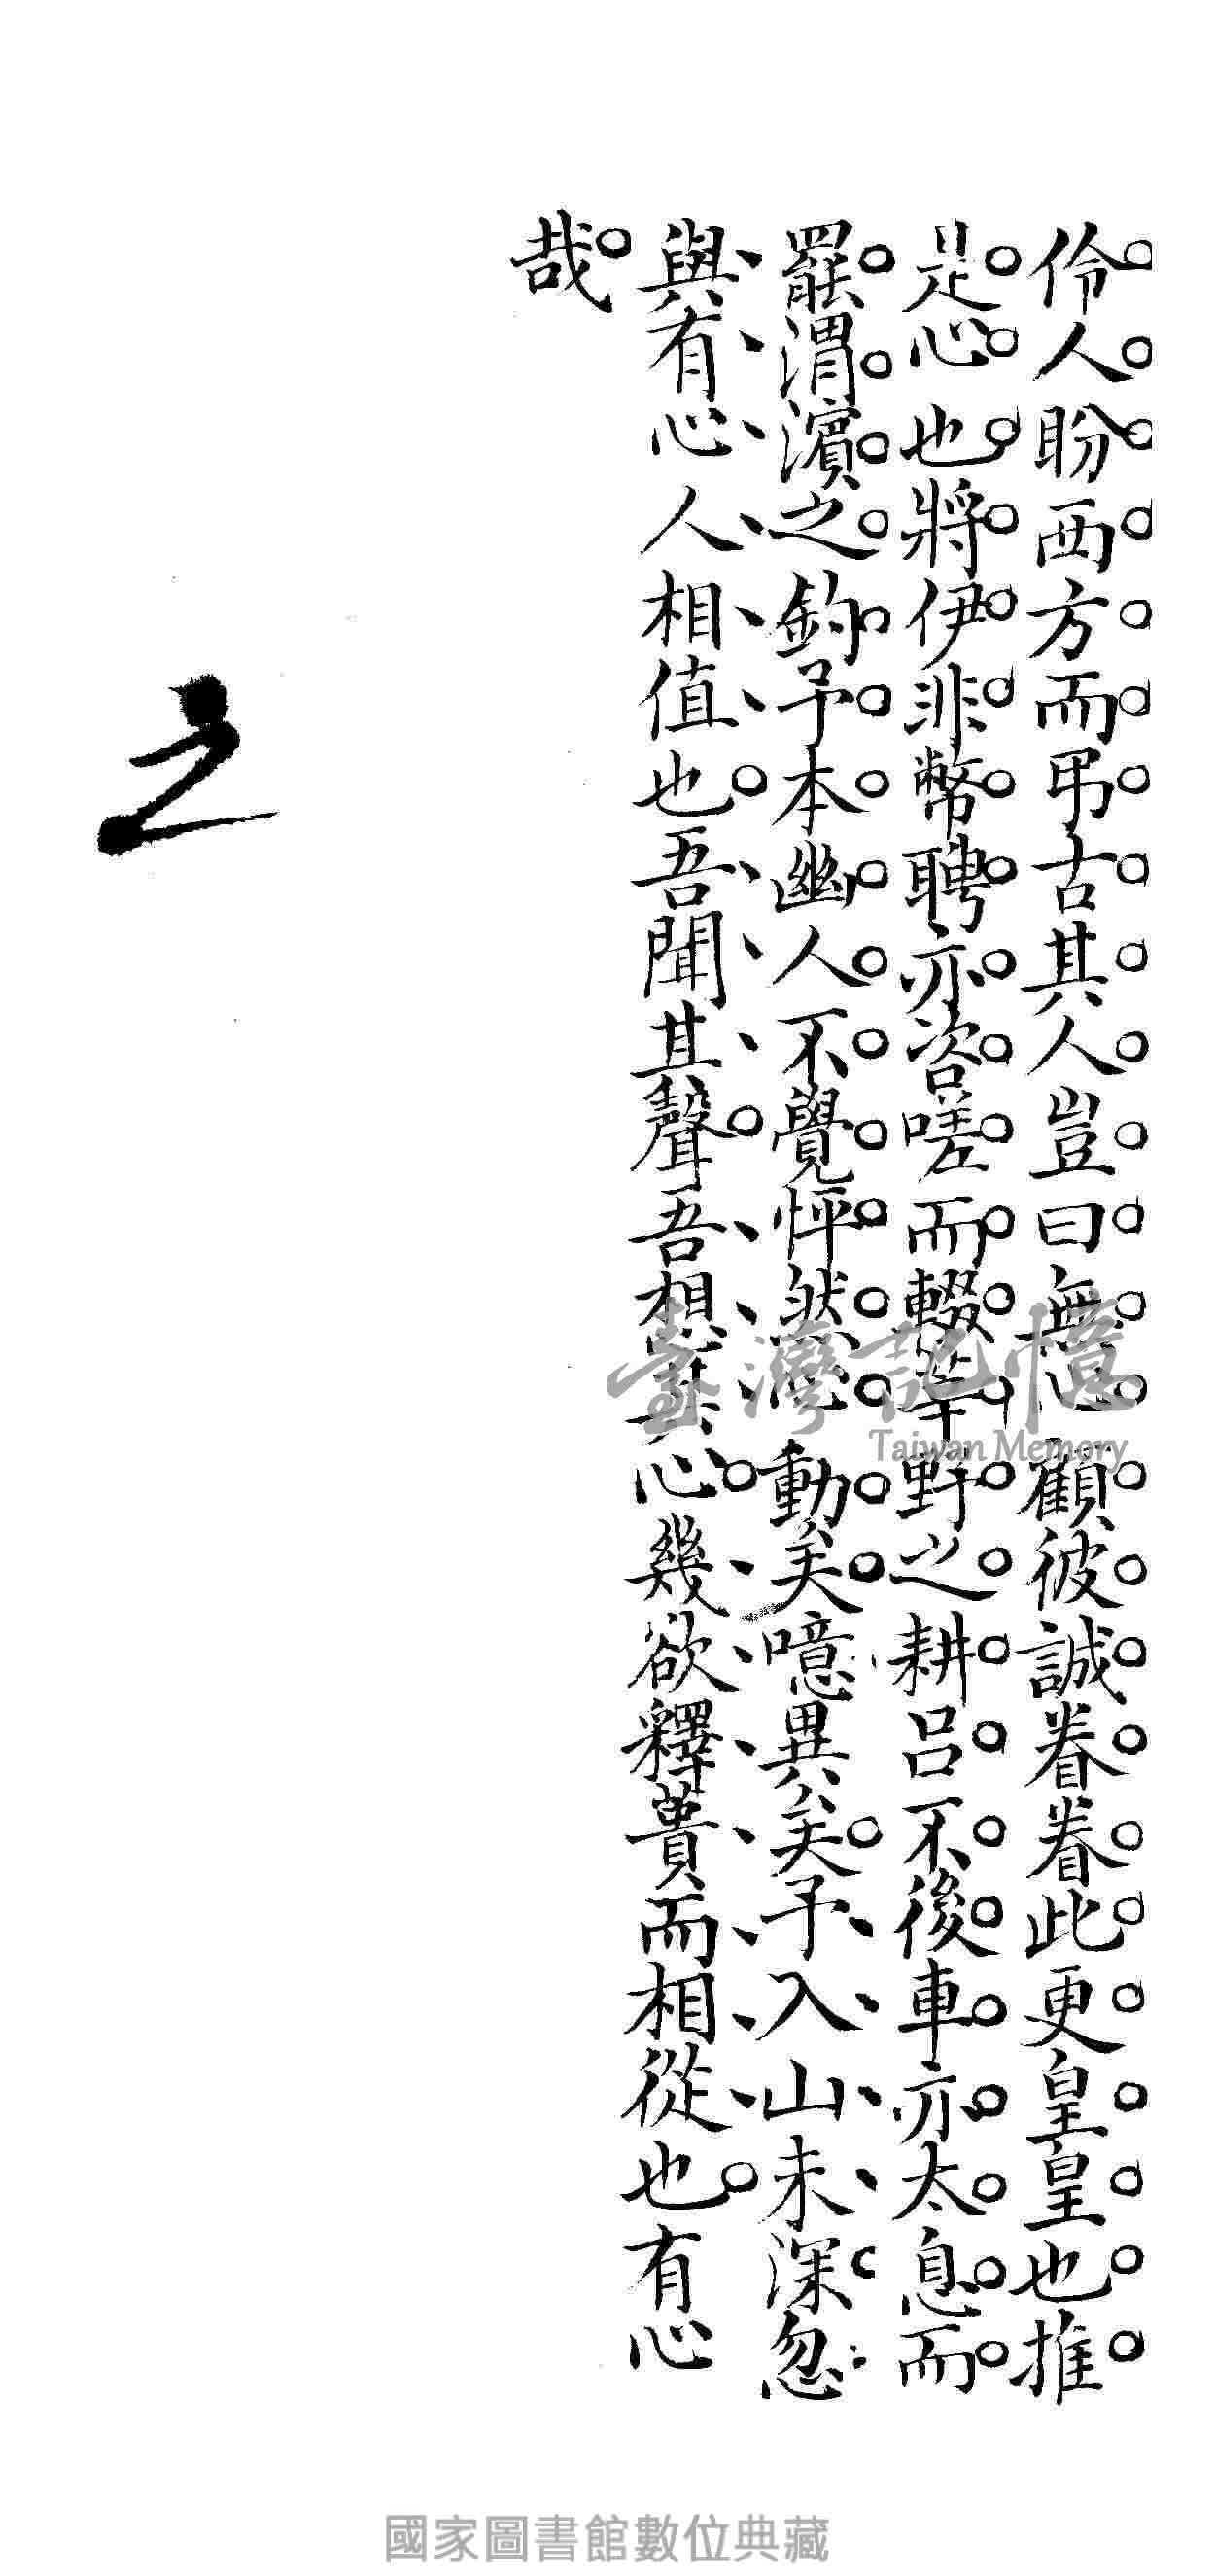 伶人盼西方而弔古其人豈曰無心顧彼誠眷眷此更皇皇也推
是心也將伊非幣聘亦咨嗟而輟莘野之耕呂不後車亦太息而
罷渭濱之釣予本幽人不覺怦然心動矣噫異矣予入山未深忽
與有心人相值也吾聞其聲吾想其心幾欲釋蕢而相從也有心
哉
臺灣記憶
Taiwan Memory
國家圖書館數位典藏